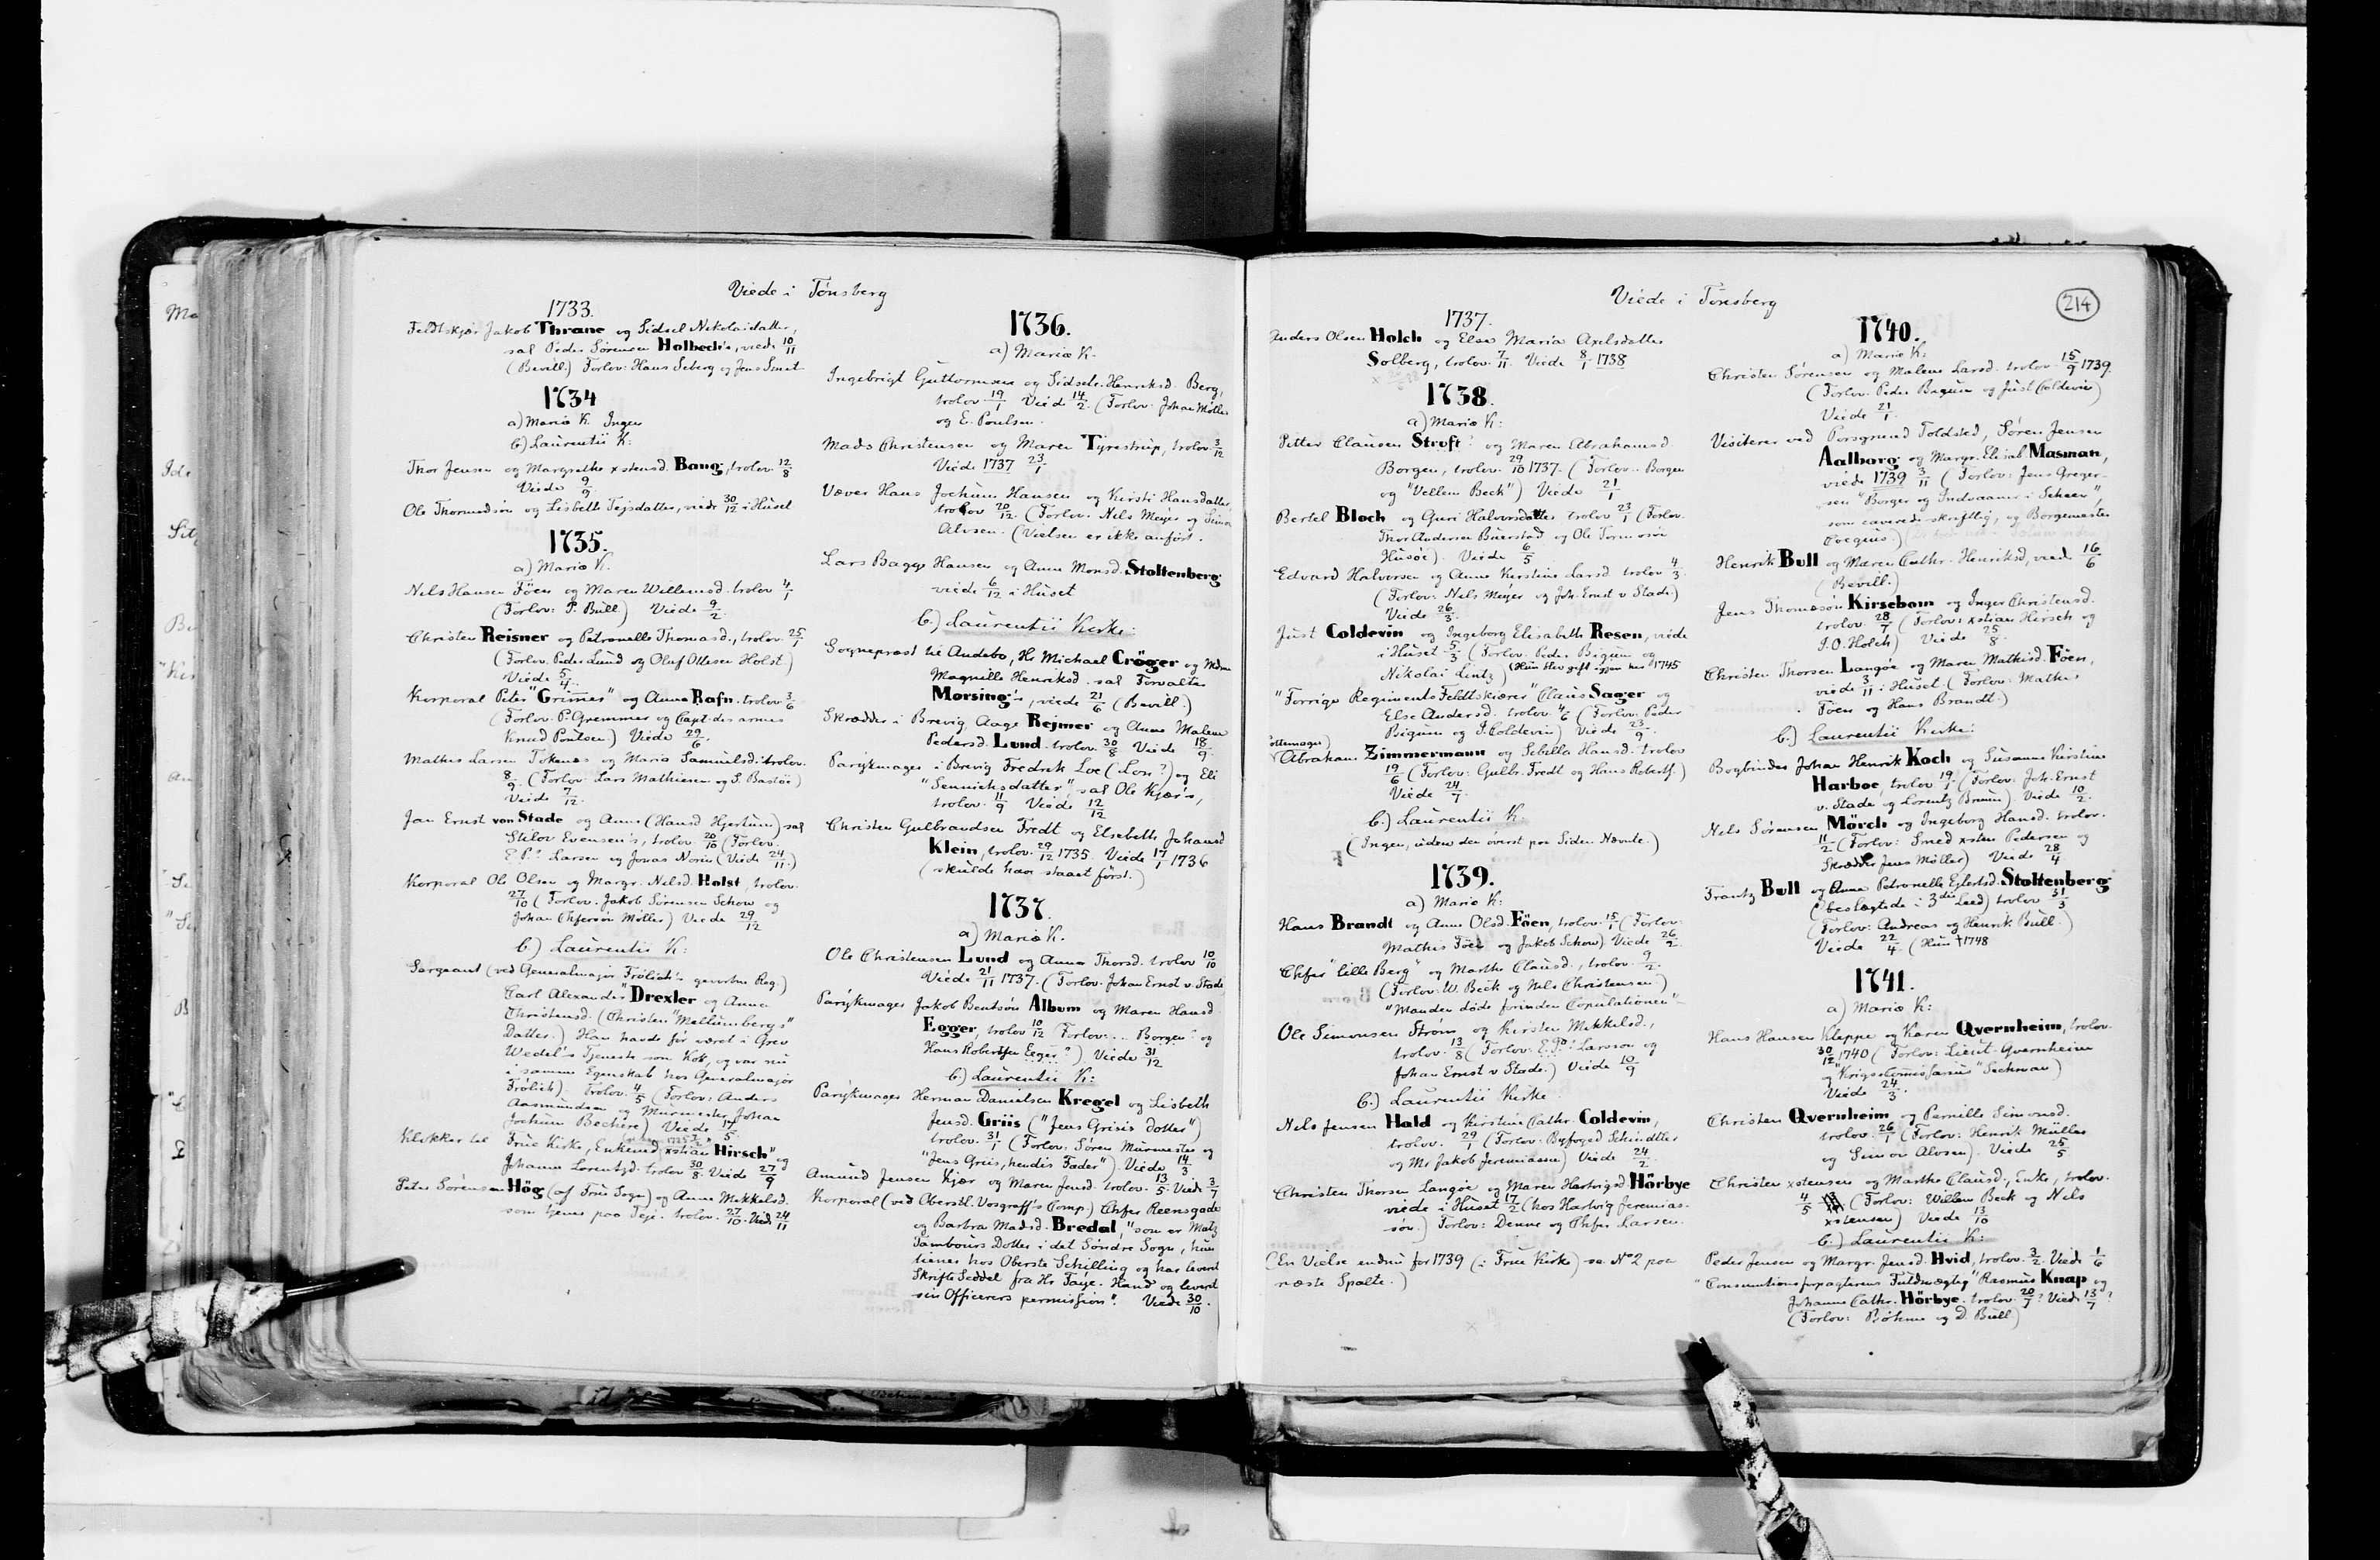 Viede i Tönsberg
1733.
Feldtskjær Jakob Thrane og Sidsel Nikolaidatter,
sal Peder Sørensen Holbech's, viede 10/11
(Bevill.) Forlov: Hans Seberg og Jens Smit
1734
a) Mariæ K. Ingen
b) Laurentii K:
Thor Jensen og Margrethe xstensd. Bang, trolov. 12/8
Viede 9/9.
Ole Thormodsön og Lisbeth Tejsdatter, viede 30/12 i Huset
1735.
a) Mariæ K.
Nils Hansen Föen og Maren Willumsd. trolov 4/1
(Forlov: P. Bull) Viede 9/2.
Christen Reisner og Petronelle Thomasd., trolov. 25/1
(Forlov. Peder Lund og Oluf Ottesen Holst)
Viede 5/4.
Korporal Peter "Grimes" og Anna Rafn. trolov 3/6
(Forlov. P. Gremmer og Capt. des armes
Knud Poulsen.) Viede 29/6.
Mathis Larsen Tokenæs og Maria Samuelsd: trolov.
8/9. (Forlov: Lars Mathiesen og S. Bastöe)
Viede 7/12.
Jan Ernst von Stade og Anne (Hansd Hjertum) sal
Stilov Evensen's, trolov. 20/10 (Forlov.
Larsen og Jonas Norin (Viede 24/11.)
Korporal Ole Olsen og Margr. Nilsd. Holst, trolov.
27/10 (Forlov. Jakob Sörensen Schow og
Johan Chfersön Möller) Viede 29/12
b.) Laurentii K:
Sargeant (ved Generalmajor Frölich's gevorbne Reg.)
Carl Alexander Drexler og Anna
Christensd. (Christen "Mellumbergs"
Datter.) Han havde för været i Grev
Wedel's Tjeneste som Kok, og var nu
i samme Egenskab hos Generalmajor
Frölich). Trolov. 4/5 (Forlov: Anders
Aasmundsen og Murmester Johan
Jochum Bechere) Viede 17/5.
Klokker til Frue Kirke, Enkemd. xstian Hirsch" og
Johanna Lorentzd. trolov 30/8. Viede 27/9
Peter Sörensen Hög (af Frue Sogn) og Anna Mekkelsd.
som tjener paa Teje. trolov. 27/10. Viede 24/11
1736.
a) Mariæ K.
Ingebrigt Guttormsen og Sidsele Henriksd. Berg,
trolov 19/1 Viede 14/2. (Forlov: Johan Möller
og E. Poulsen.
Mads Christensen og Maren Tyrestrup, trolov. 3/12
Viede 1737 23/1
Væver Hans Jochum Hansen og Kirsti Hansdatter,
trolov 20/12. (Forlov. Nils Meyer og Simon
Alvsen. (Vielsen er ikke anfört.
Lars Bagge Hansen og Anne Monsd. Stoltenberg
viede 6/12 i Huset
b.) Laurentii Kirke:
Sogneprest til Andebo, Hr Michael Cröger og Mdme
Magnille Henriksd. sal Forvalter
Morsing's, viede 21/6 (Bevill.)
Skrædder i Brevig Aage Rejmer og Anne Malene
Pedersd. Lund. trolov. 30/8 Viede 18/9.
Parykmager i Brevig Fredrik Loe (Lou?) og Eli
"Sennichsdatter", sal Ole Kjær's,
trolov. 11/9 Viede 12/12
Christen Gulbrandsen Fredt og Elsebeth Johansd
Klein, trolov. 29/12 1735. Viede 17/1 1736
(skulde have staaet först.)
1737.
a) Mariæ K.
Ole Christensen Lund og Anna Thorsd. trolov 10/10
Viede 21/11 1737. (Forlov. Johan Ernst v. Stade
Parykmager Jakob Bentsön Album og Maren Hansd
Egger, trolov 10/12 (Forlov: ... Borgen" og
Hans Robertsen Egger") Viede 31/12
b.) Laurentii K:
Parykmager Herman Danielsen Kregel og Lisbeth
Jensd. Griis ("Jens Grisis Dotter")
trolov. 31/1 (Forlov: Sören Murmester og
"Jens Griis, hendis Fader") Viede 14/3
Amund Jensen Kjær og Maren Jensd. trolov. 13/5. Viede 3/7
Korporal (ved Oberstl. Vosgraff's Comp.) Chfer Reensgade
og Barbra Madsd. Bredal, "som er Matz
Tambours Dotter i det Söndre Sogn, hun
tiener hos Oberste Schilling og har levert
Skrifte Seddel fra Hr Taye. Hand og levert
sin Officerers permission". Viede 30/10.
Viede i Tönsberg
214
1737.
Anders Olsen Holch og Else Maria Axelsdatter
Solberg, trolov. 7/11 Viede 8/1 1738
1738.
a) Mariæ K:
Petter Clausen Struft? og Maren Abrahamsd.
Borgen, trolov. 29/10 1737. (Forlov: Borgen
og "Vellem Beck") Viede 21/1
Bertel Bloch og Guri Halvorsdatter trolov 23/1 (Forlov.
Thor Andersen Buerstad og Ole Tormosön
Husöe) Viede 6/5
Edvard Halvorsen og Anne Kirstine Larsd trolov 4/3.
(Forlov: Nils Meyer og Joh. Ernst v Stade)
Viede 26/3.
Just Coldevin og Ingeborg Elisabeth Resen, viede
i Huset 5/3 (Forlov. Peder Bigum og
Nikolai Lintz) (Hun blev gift igjen her 1745
"Forrige Regiments Feldtskiærer" Claus Sager og
Else Andersd. trolov. 4/6 (Forlov. Peder
Bigum og J. Coldevin) Viede 23/9.
Abraham Zimmermann og Sebella Hansd. trolov
19/6 (Forlov: Gulbr. Fredt og Hans Robertf.)
Viede 24/7.
b.) Laurentii K.
(Ingen, uden den överst paa Siden Nævnte.)
1739.
a) Mariæ K:
Hans Brandt og Anne Olsd. Föen, trolov. 15/1 (Forlov:
Mathis Föen og Jakob Schow) Viede 26/2.
Chfer "lille Berg" og Marthe Clausd., trolov. 9/2.
(Forlov: W. Beck og Nels Christensen)
"Manden döde forinden Copulationen"
Ole Simonsen Ström og Kirsten Mekkelsd.,
trolov. 13/8 (Forlov: Larsson og
Johan Ernst v Stade.) Viede 10/9
b.) Laurentii Kirke
Nils Jensen Hald og Kirstine Cathr. Coldevin,
trolov. 29/1 (Forlov: Byfoged Schindtler
og Mr Jakob Jeremiassen) Viede 24/2.
Christen Thorsen Langöe og Maren Hartvigsd Hörbye
viede i Huset 17/2 (hos Hartvig Jeremias-
sön.) Forlov: Denne og Chfer Larsen.
(En Vielse endnu for 1739 (i Frue Kirke) se No 2 paa
næste Spalte.)
1740.
a) Mariæ K:
Christen Sørensen og Malene Larsd. trolov. 15/9 1739.
(Forlov: Peder Bigum og Just Coldevin)
Viede 21/1.
Visiterer ved Porsgrund Toldsted, Sören Jensen
Aalborg og Margr. Elisab Masman,
viede 1739 3/11 (Forlov: Jens Greger-
sen "Borger og Indvaaner i Scheen",
som caverede skriftlig, og Borgemester
Coegius.)
Henrik Bull og Maren Cathr. Henriksd, viede 16/6
(Bevill.)
Jens Thomæsön Kirsebom og Inger Christensd.
trolov. 28/7 (Forlov: xstian Hirsch og
J. O. Holch) Viede 25/8.
Christen Thorsen Langöe og Maren Mathisd. Föen,
viede 3/11 i Huset. (Forlov: Mathis
Föen og Hans Brandt.)
b.) Laurentii Kirke:
Bogbinder Johan Henrik Koch og Susanne Kirstine
Harboe, trolov. 19/1 (Forlov: Joh. Ernst
v. Stade og Lorentz Bruun). Viede 10/2.
Nils Sörensen Mörch og Ingeborg Hansd. trolov.
11/2 (Forlov: Smed xsten Pedersen og
Skrædder Jens Möller) Viede 28/4
Frantz Bull og Anna Petronelle Eylertsd. Stoltenberg
(beslægtede i 3die Leed) trolov 31/3
(Forlov: Andreas og Henrik Bull.)
Viede 22/4. (Hun †1748
1741.
a) Mariæ K:
Hans Hansen Kleppe og Karen Qvernheim, trolov.
30/12 1740 (Forlov: Lieut. Qvernheim
og Krigs Comisfarius" Sechman)
Viede 24/3.
Christen Qvernheim og Pernille Simonsd.
trolov. 26/1 (Forlov: Henrik Müller
og Simon Alvsen). Viede 25/5
Christen xstensen og Marthe Clausd., Enke, trolov.
4/5 (Forlov: Willum Beck og Nels
xstensen) Viede 13/10
b.) Laurentii K:
Peder Jensen og Margr. Jensd. Hvid, trolov. 3/2. Viede 1/6
"Consumtionsforpagterens Fuldmægtig" Rasmus Knap og
Johanne Cathr. Hörbye. trolov. 20/7? Viede 13/7?
(Forlov: Böhme og D. Bull)